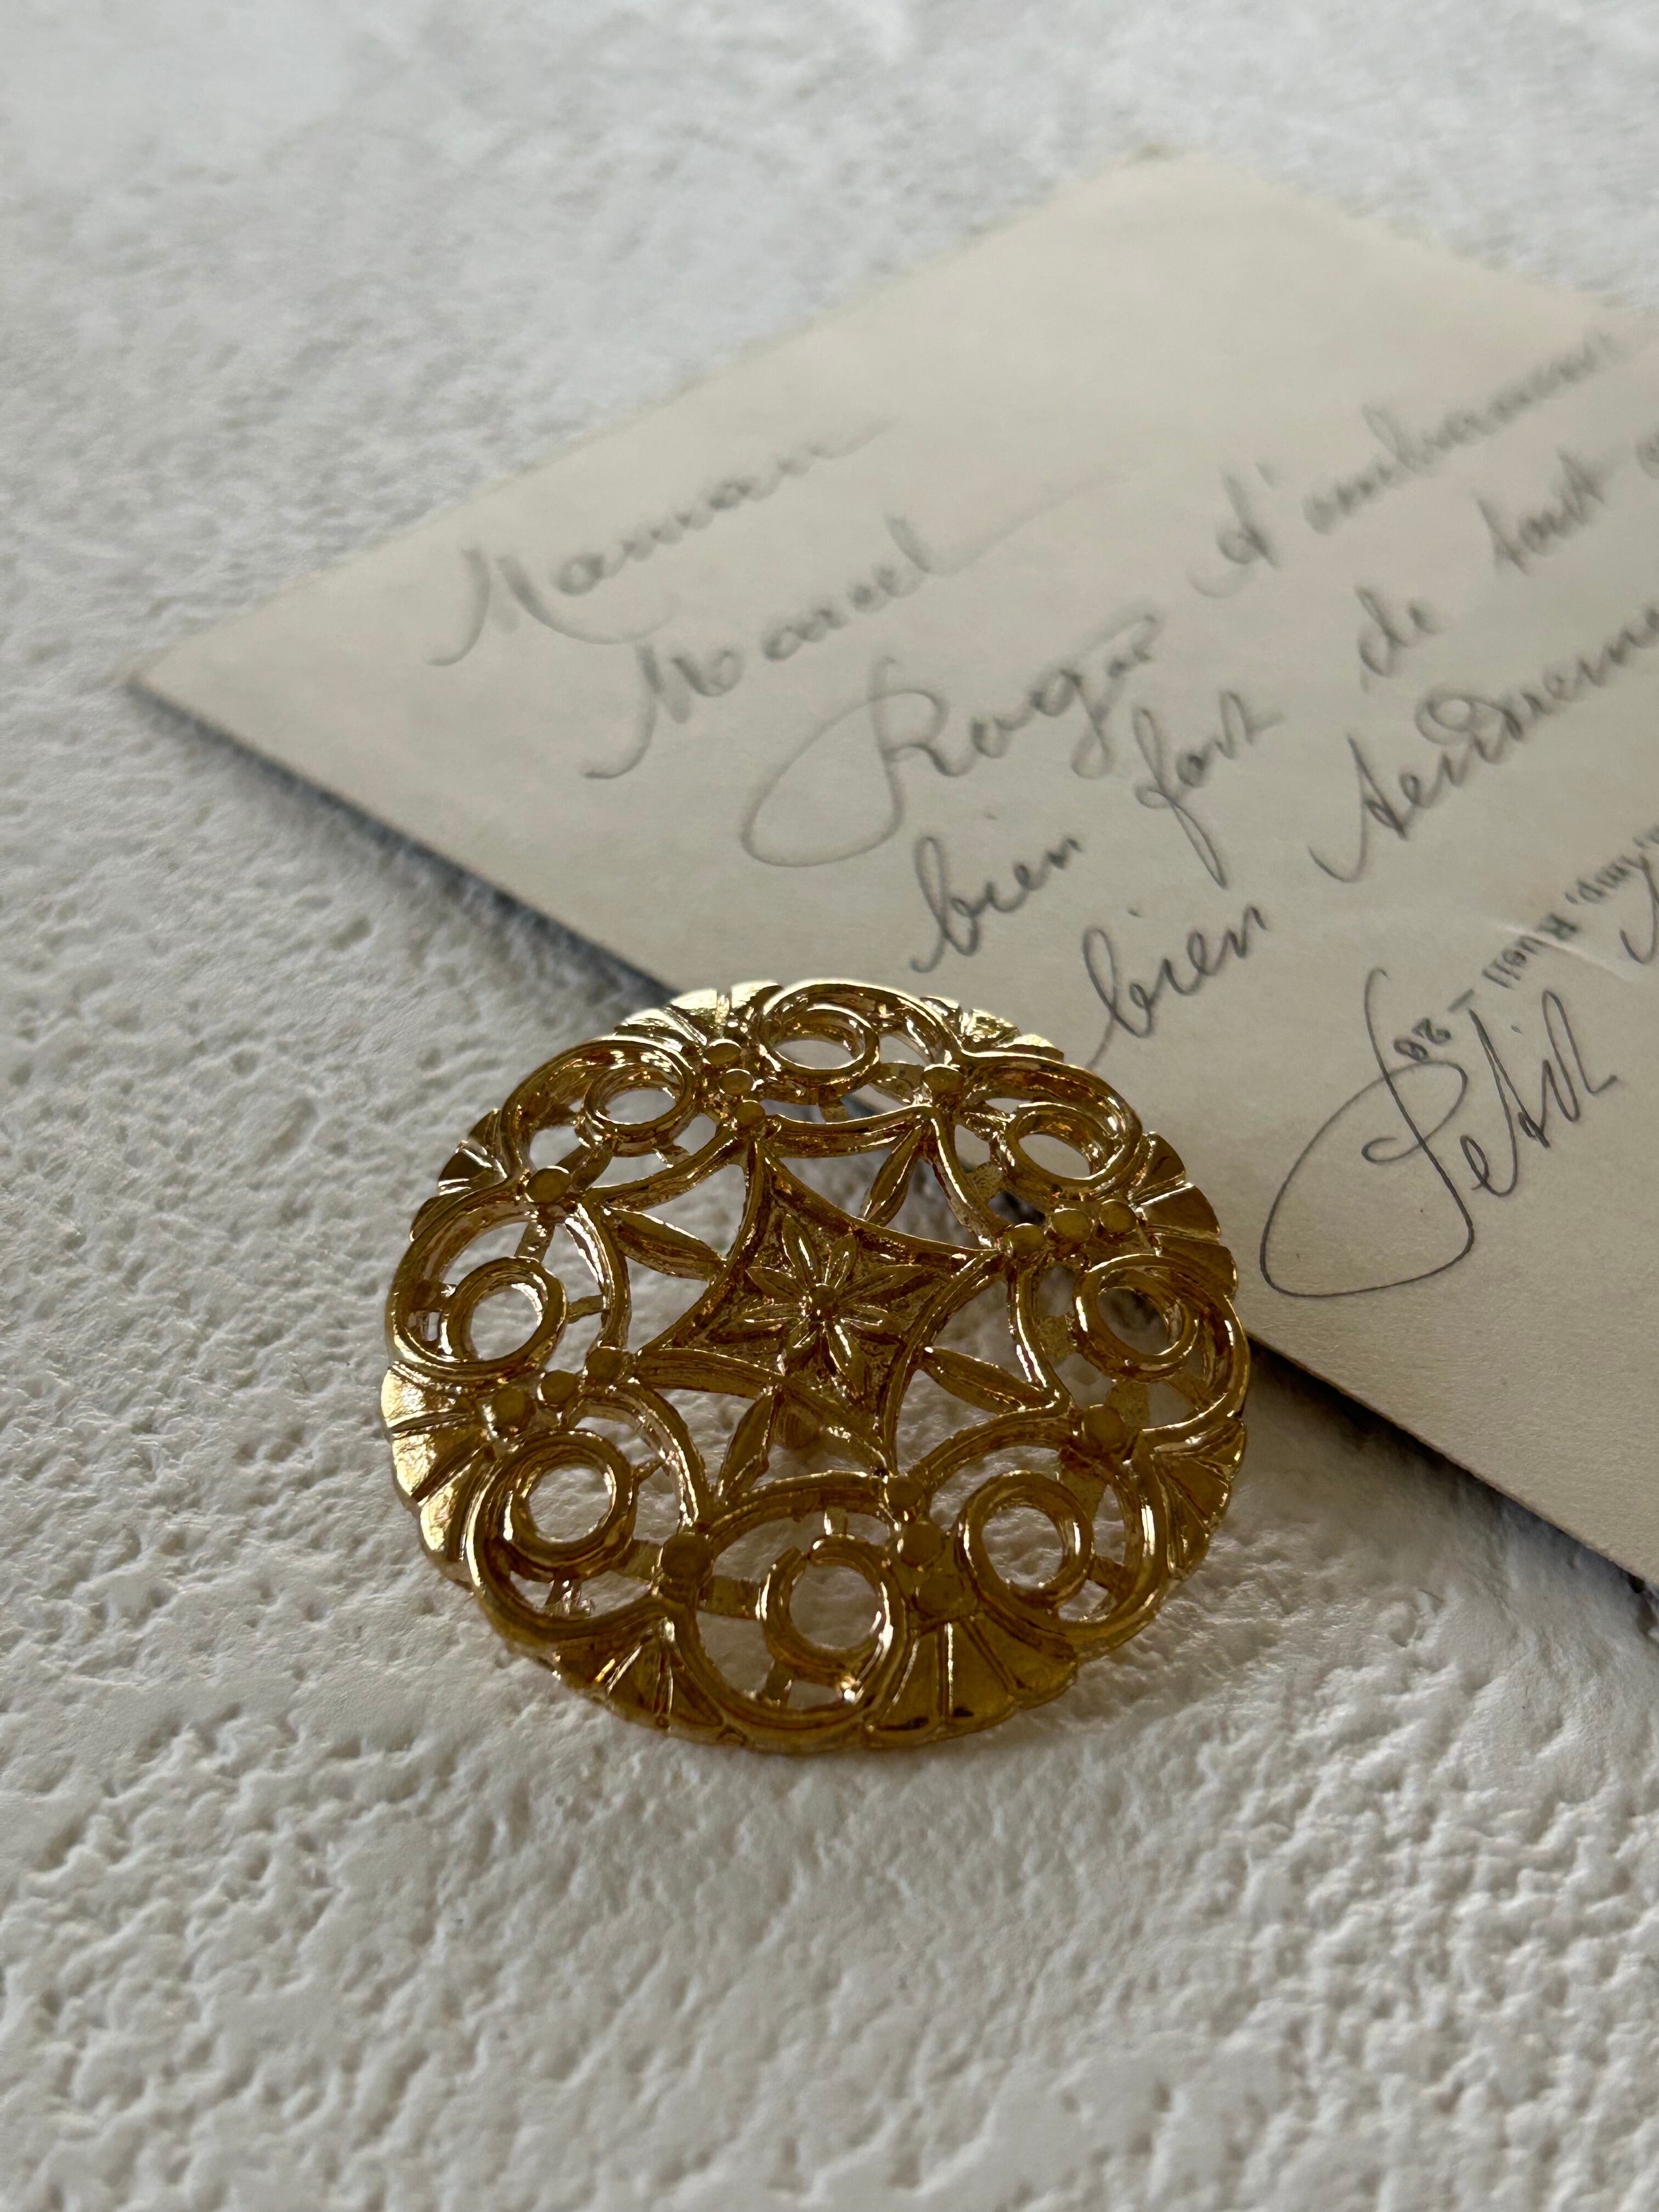 Maman
Marcel
Roger t'embrassent
bien fort de tout
bien tendrement
Petit
Imp. Ruell — 26